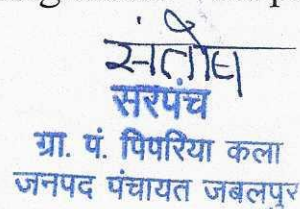 संतोष
सरपंच
ग्रा. पं. पिपरिया कला
जनपद पंचायत जबलपुर